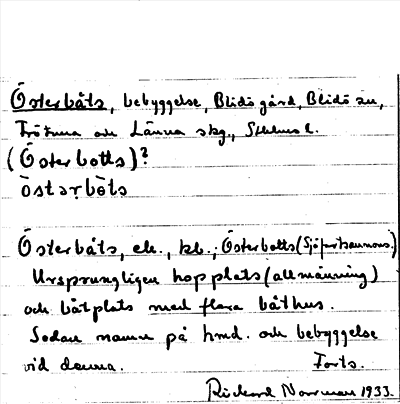 Österbåts, bebyggelse, Blidö gård, Blidö sn,
Frötuna och Länna skg., Sthlms l.
(Österbotts)?
östərbòts
Österbåts, ek., kb.; Österbotts (Sjöfartsannons.)
Ursprungligen hopplats (allmänning)
och båtplats med flera båthus.
Sedan namn på hmd. och bebyggelse
vid denna. Forts.
Rickard Norrman 1933.